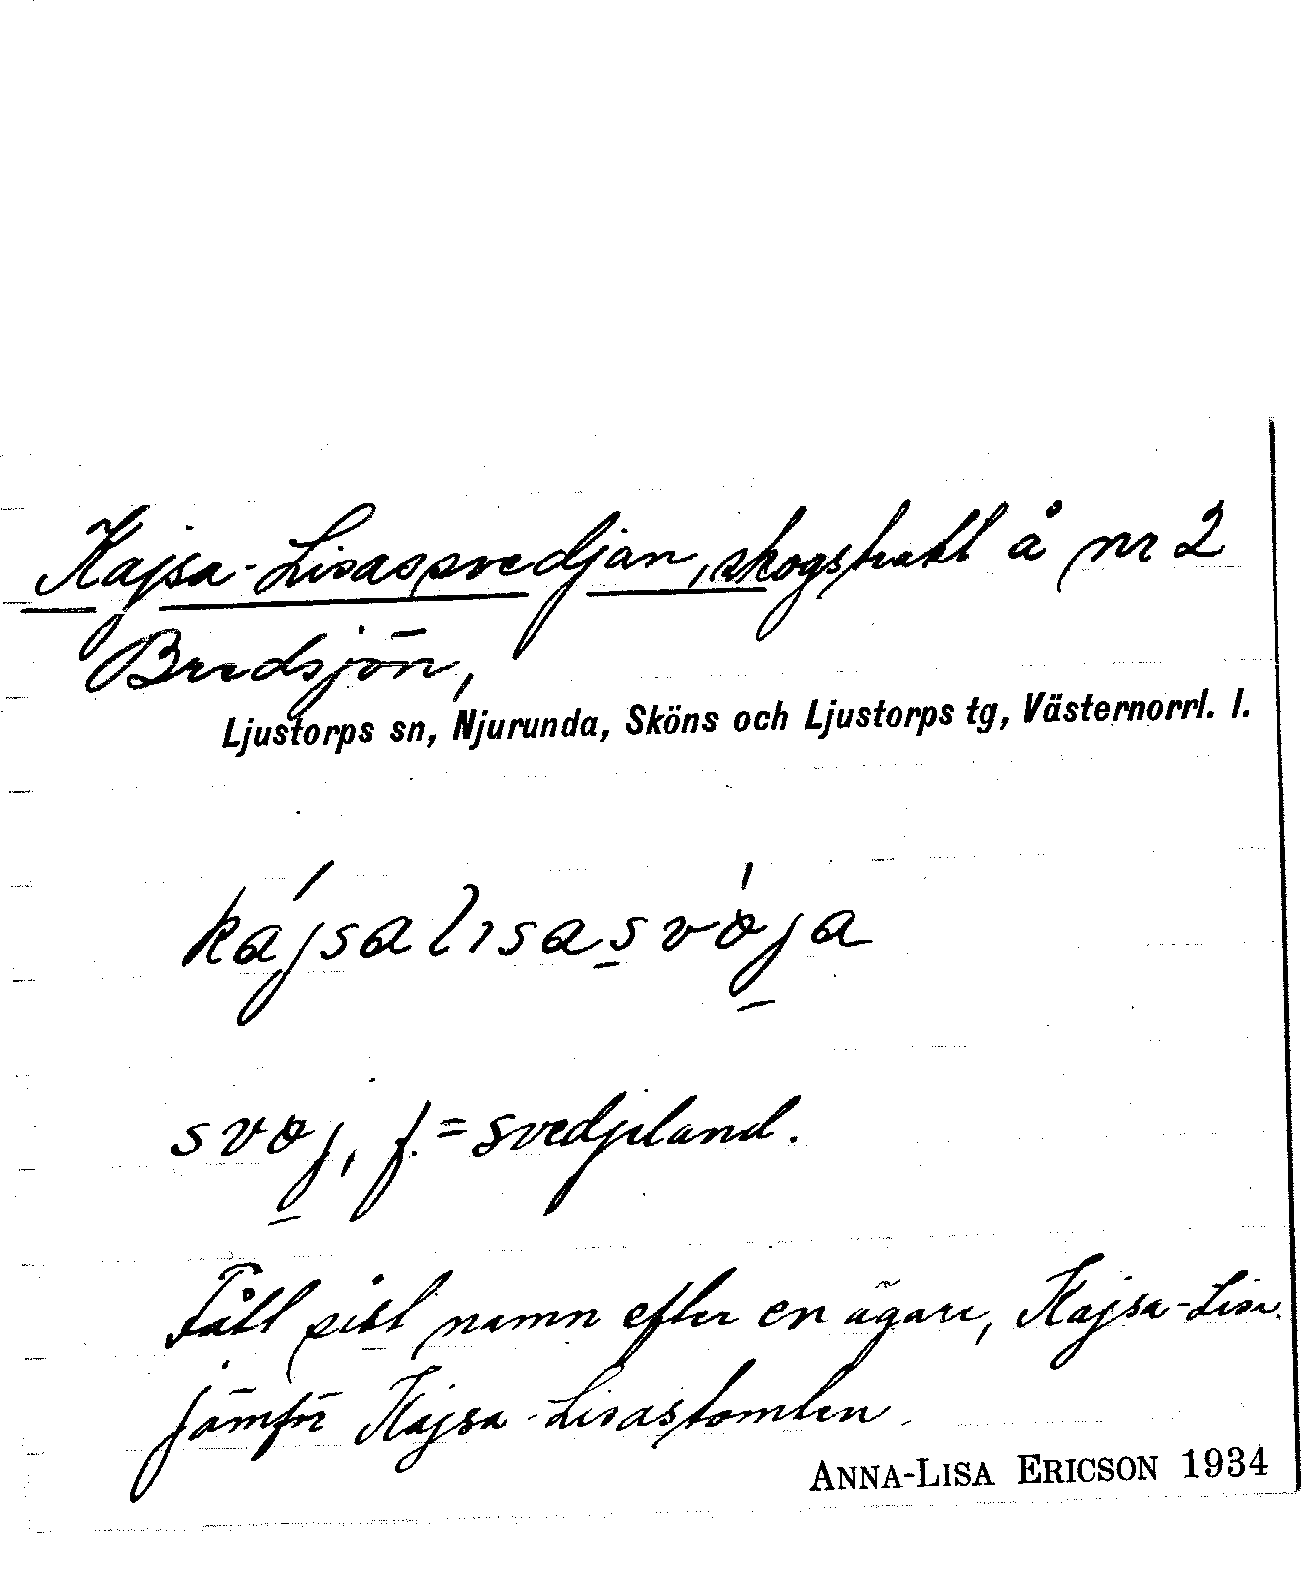 Kajsa-Lisassvedjan, skogstrakt å nr 2
Bredsjön,
Ljustorps sn, Njurunda, Sköns och Ljustorps tg, Västernorrl. l.
kájsalisasvөja
svөj, f. = svedjeland.
Fått sitt namn efter en ägare, Kajsa-Lisa.
jämför Kajsa-Lisastomten.
ANNA-LISA ERICSON 1934